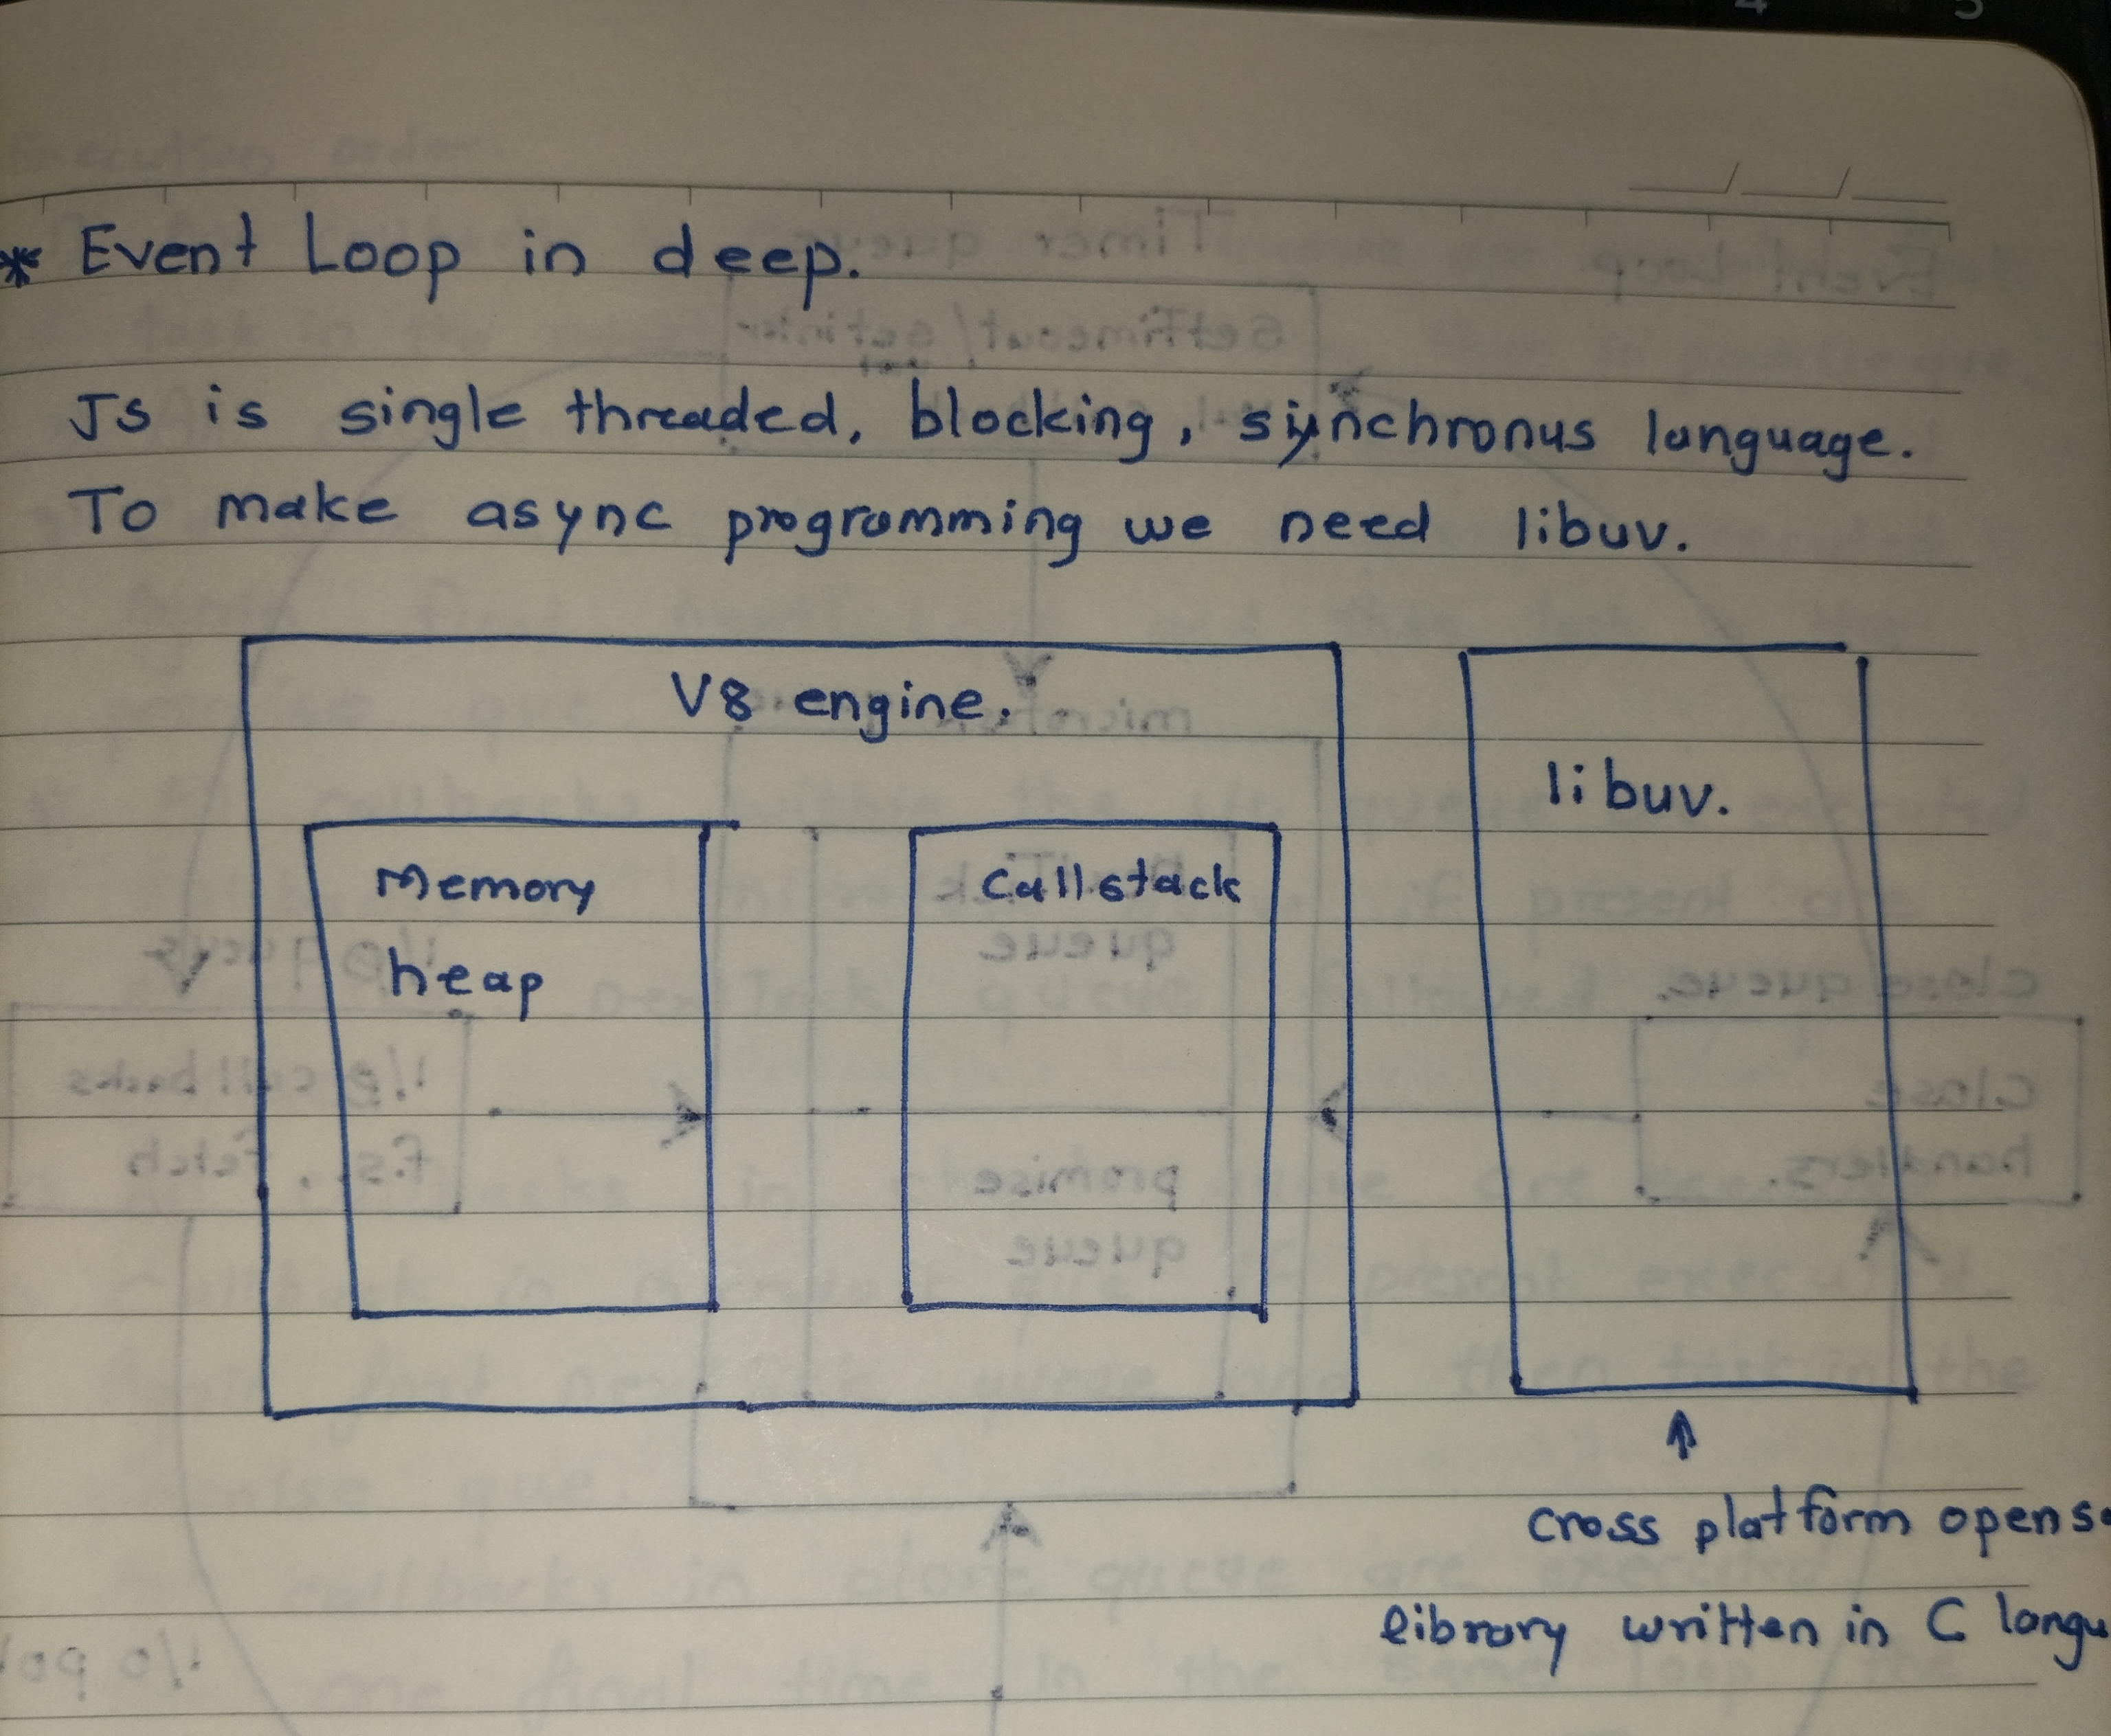 * Event Loop in deep.
JS is single threaded, blocking, synchronus language.
To make async programming we need libuv.
V8 engine.
libuv.
Memory
heap
Callstack
cross platform opens
library written in C langu